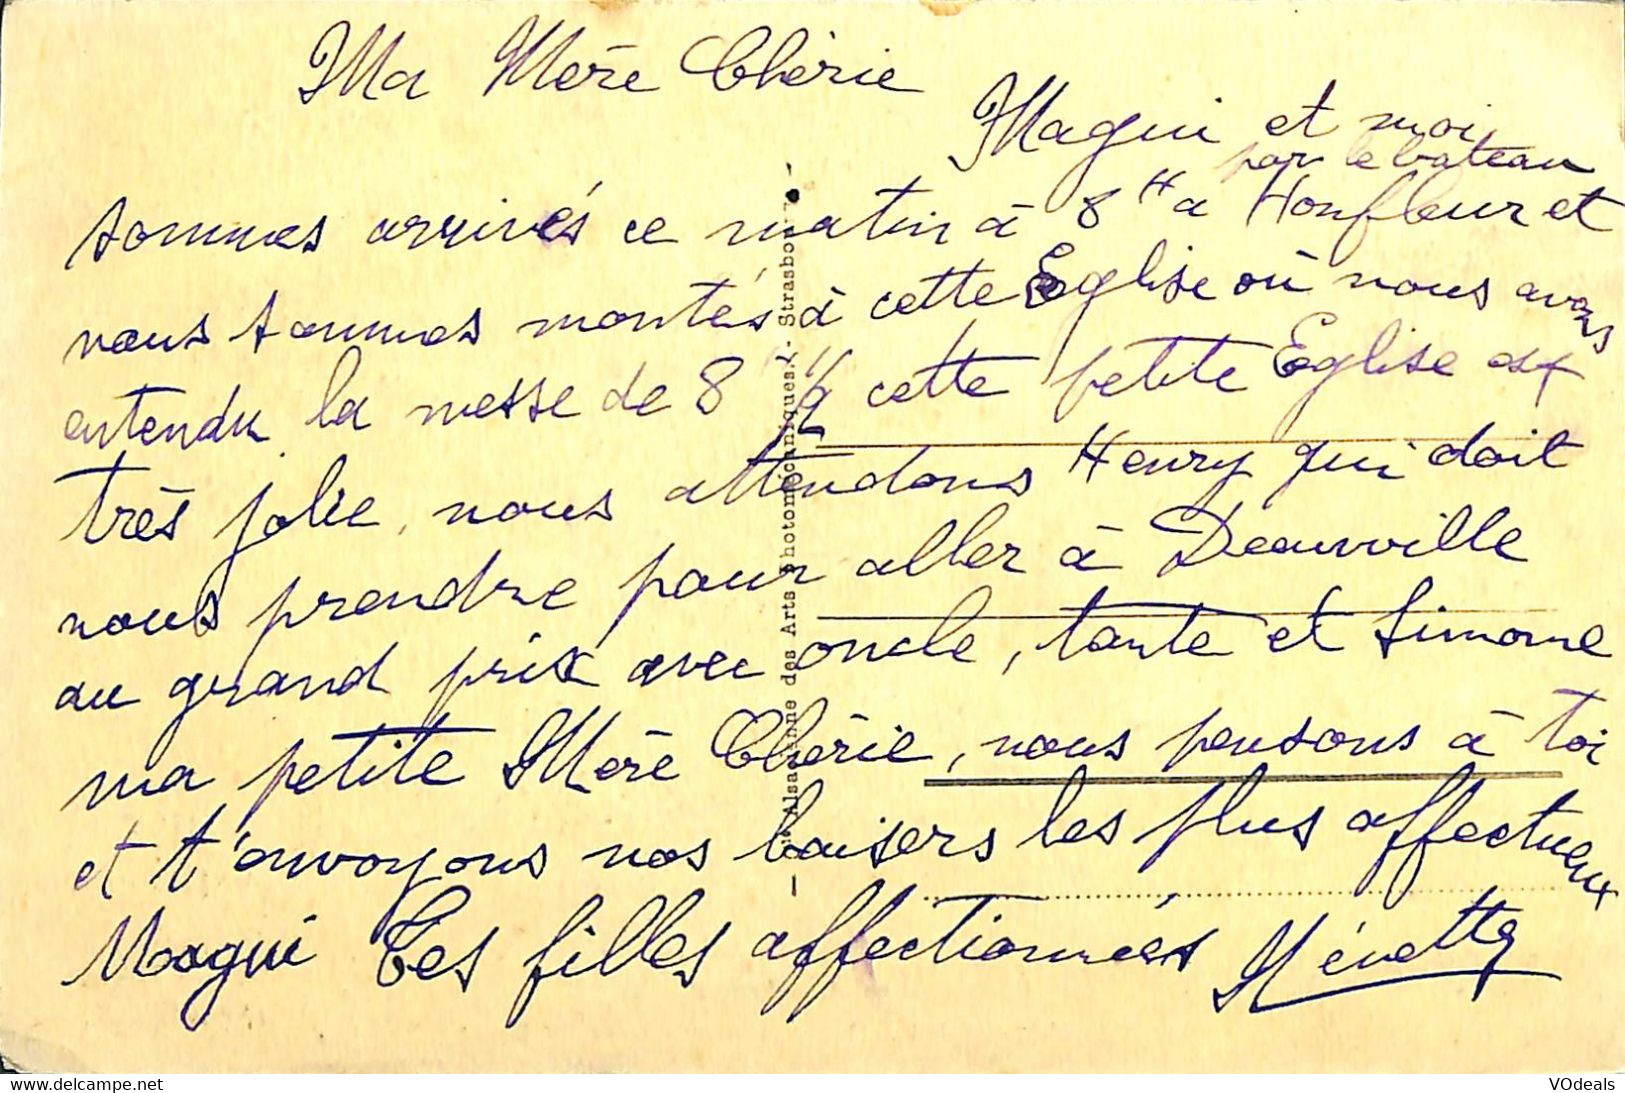 Ma Mère Chérie
Magui et moi
par le bateau
sommes arrivés ce matin à 8 H a Honfleur et
nous sommes montés à cette Eglise où nous avons
entendu la messe de 8 1/2 cette petite Eglise est
très jolie, nous attendons Henry qui doit
nous prendre pour aller à Deauville
au grand prix avec oncle, tante et Simone
ma petite Mère Chérie, nous pensons à toi
et t'envoyons nos baisers les plus affectueux
Magui Tes filles affectionnées
Cie Alsacienne des Arts Photomécaniques. - Strasbourg
VOdeals